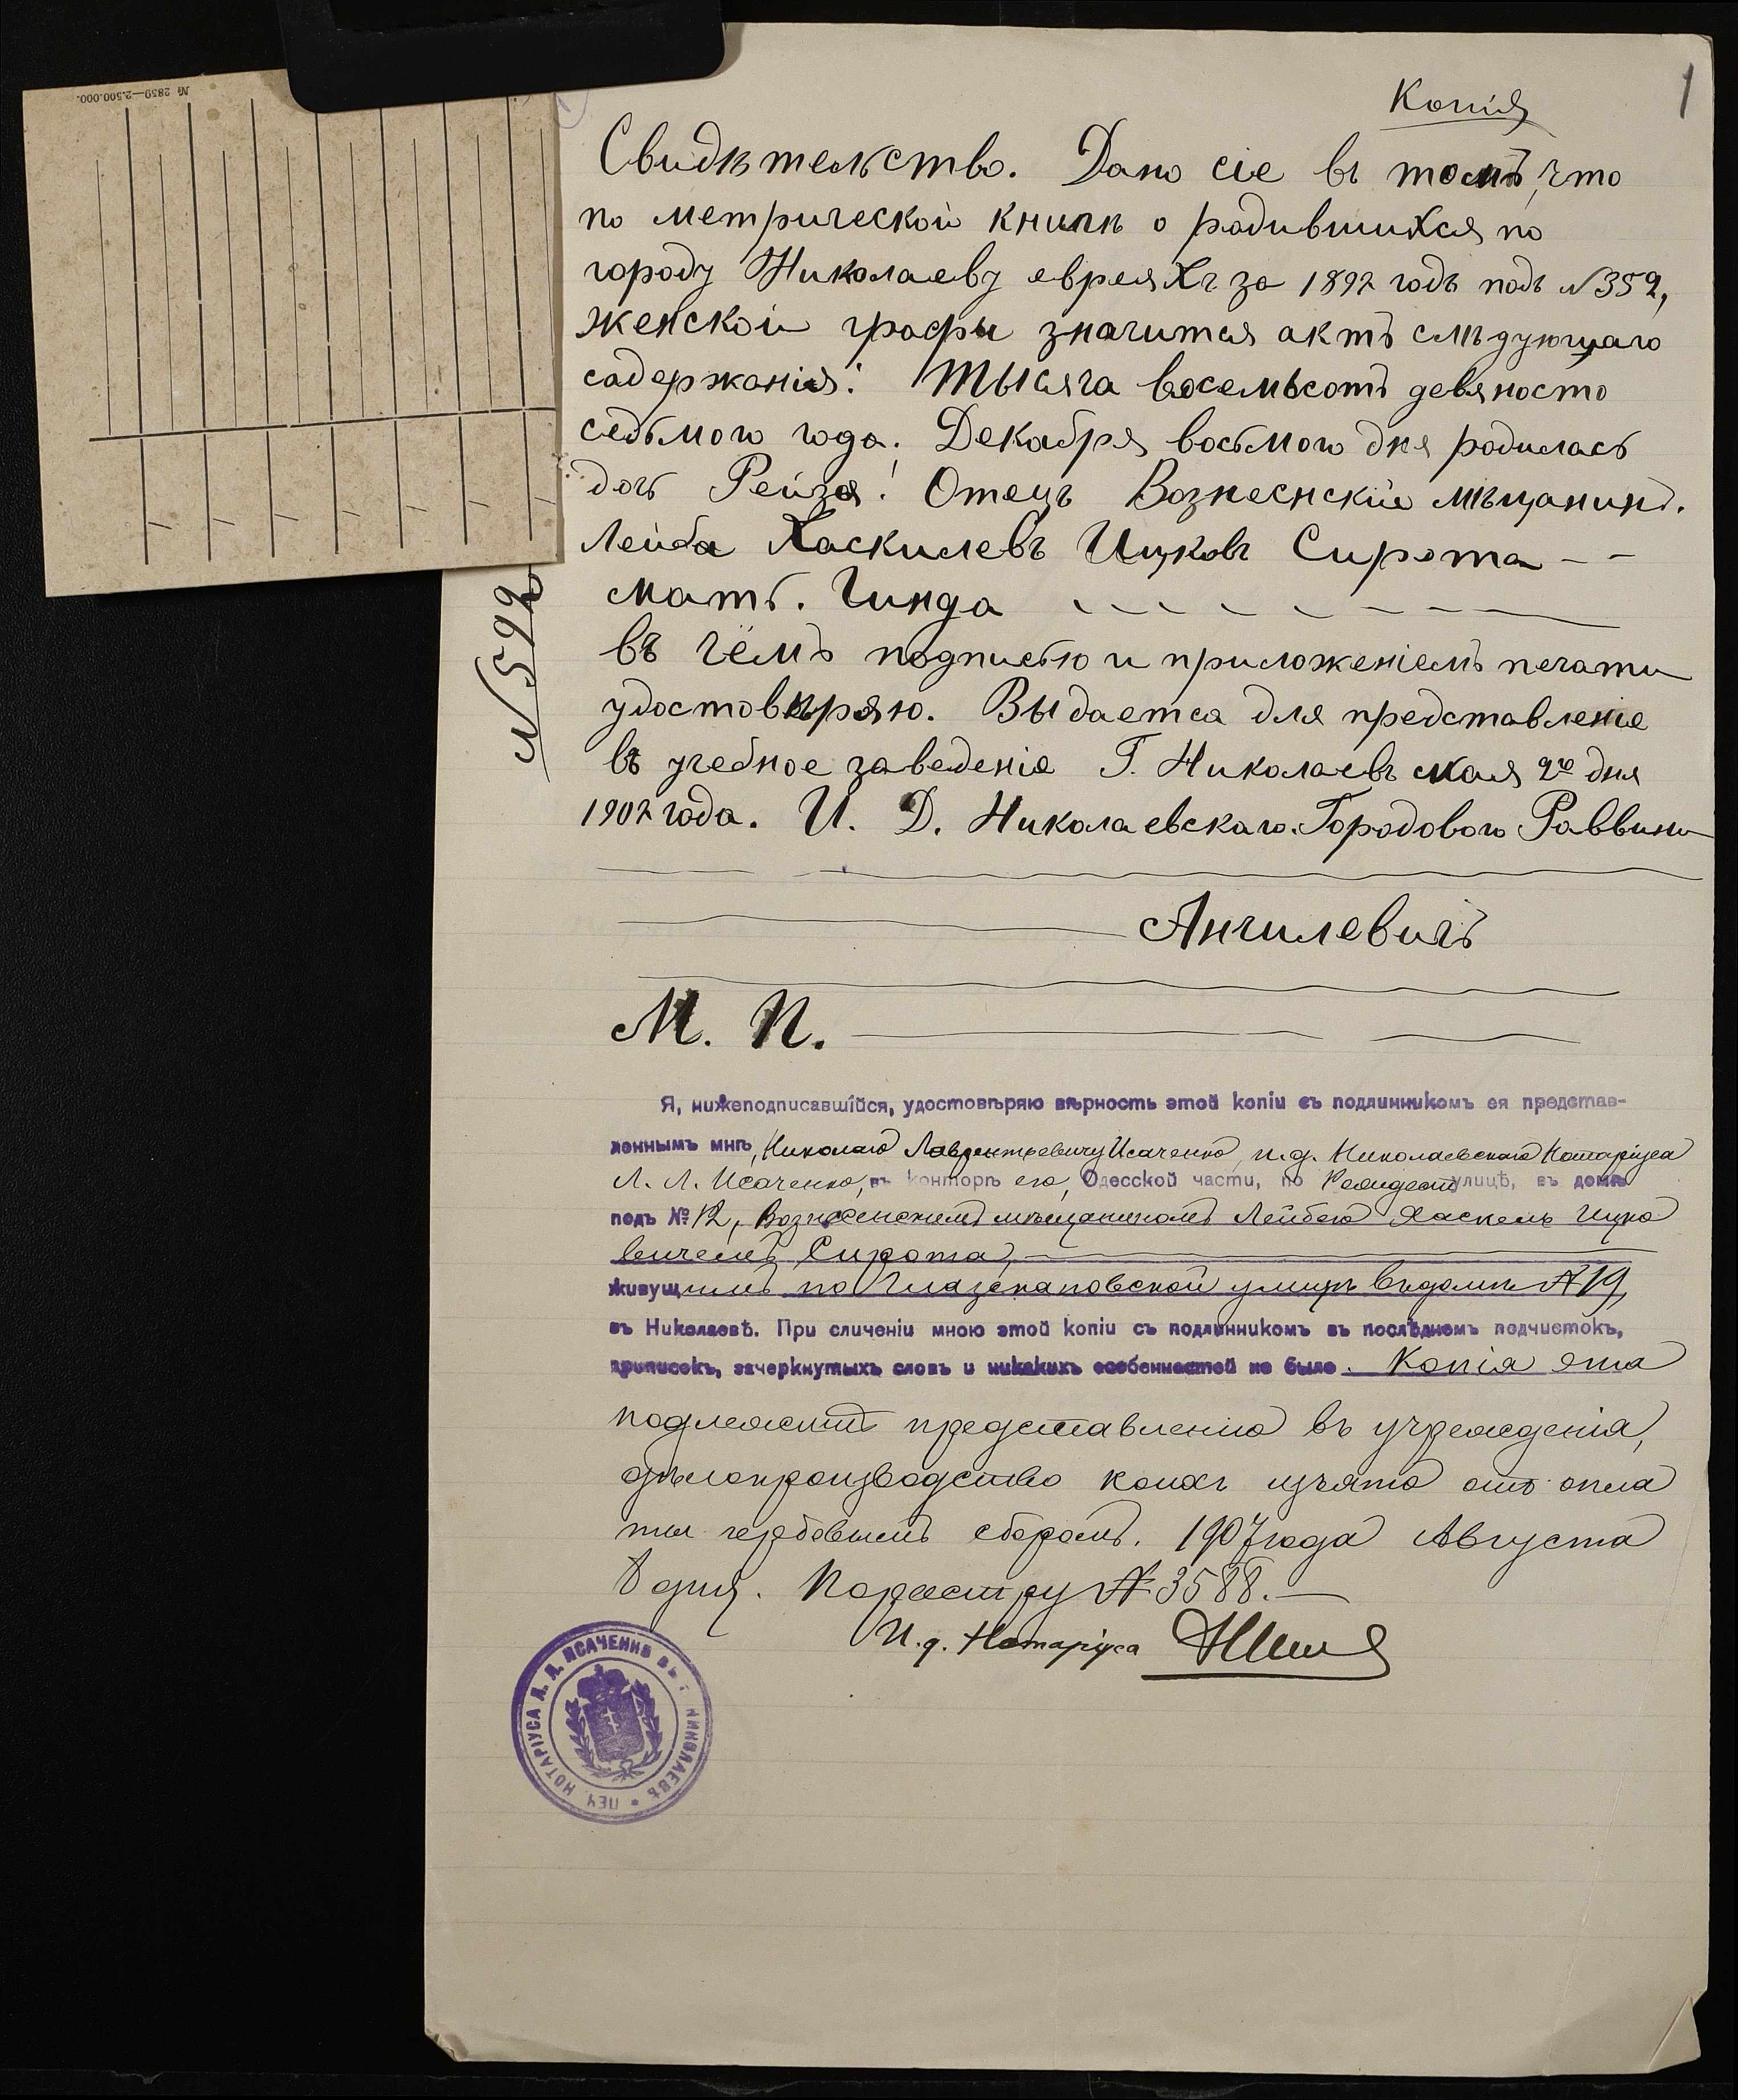 № 2859—2.500.000.
1
Копія
Свидѣтельство. Дано сіе въ томъ, что
по метрической книгѣ о родившихся по
городу Николаеву евреяхъ за 1897 годъ подъ №352,
женской графы значится актъ слѣдующаго
содержанія: Тысяча восемьсотъ девяносто
седьмого года. Декабря восьмого дня родилась
дочь Рейза! Отецъ Вознесенскій мѣщанинъ.
Лейба Хаскилевъ Ицковъ Сирота - -
мать. Гинда
въ чёмъ подписью и приложеніемъ печати
удостовѣряю. Выдается для представленіе
въ учебное заведеніе Г. Николаевъ мая 2го дня
1907 года. И. Д. Николаевскаго Городового Раввина
№ 592
Ангилевичъ
М. П.
Я, нижеподписавшійся, удостовѣряю вѣрность этой копіи съ подлинникомъ ея представ-
леннымъ мнѣ, Николаю Лаврентьевичу Исаченко, и.д. Николаевскаго Нотаріуса
Л. Л. Исаченко, въ конторѣ его, Одесской части, по улицѣ, въ домѣ
подъ № 12, Вознесенскимъ мѣщаниномъ Лейбою Хаскель Ицко
вичемъ Сирота,
живущимъ по Глазенаповской улицѣ въ домѣ № 19,
въ Николаевѣ. При сличеніи мною этой копіи съ подлинникомъ въ послѣднемъ подчистокъ,
приписокъ, зачеркнутыхъ словъ и никакихъ особенностей не было. Копія эта
подлежитъ представленію въ учрежденія,
дѣлопроизводство коихъ изъято отъ опла
ты гербовымъ сборомъ. 1907 года Августа
8 дня. По реестру № 3588.
И. д. Нотаріуса
ПЕЧ. НОТАРІУСА Л. Л. ИСАЧЕНКО ВЪ Г. НИКОЛАЕВѢ